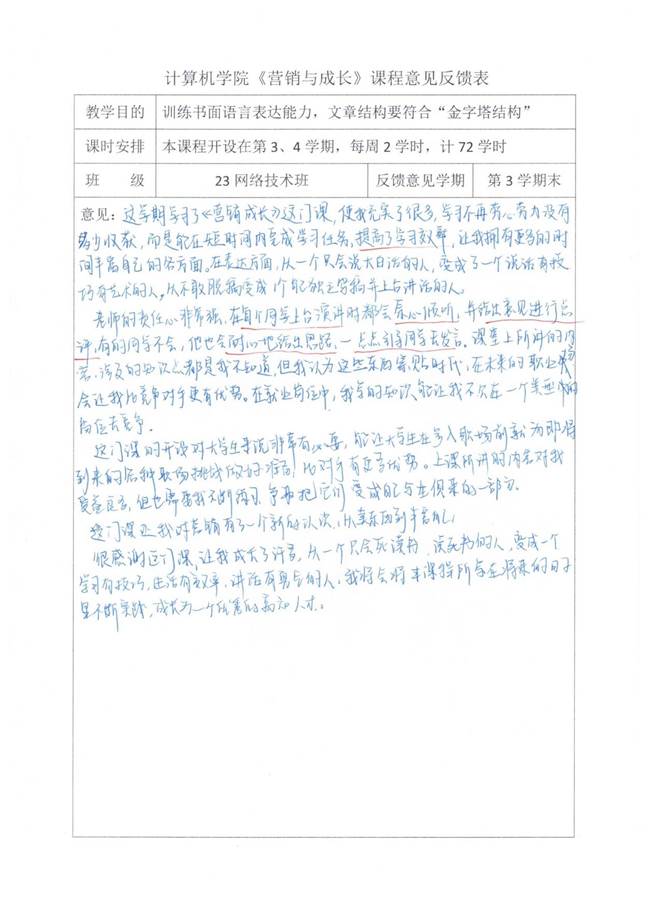 计算机学院《营销与成长》课程意见反馈表
教学目的 训练书面语言表达能力，文章结构要符合“金字塔结构”
课时安排 本课程开设在第 3、4 学期，每周 2 学时，计 72 学时
班 级 23 网络技术班 反馈意见学期 第 3 学期末
意见：这学期学习了《营销成长》这门课，使我充实了很多，学习不再劳心劳力没有
多少收获，而是能在短时间内完成学习任务，提高了学习效率，让我拥有更多的时
间丰富自己的各方面。在表达方面，从一个只会说大白话的人，变成了一个说话有技
巧有艺术的人，从不敢脱稿变成1个能独立写稿并上台讲话的人。
老师的责任心非常强，在每个同学上台演讲时都会亲心倾听，并给出意见进行点
评，有的同学不会，他也会耐心地给出思路，一点点引导同学去发言。课堂上所讲的内
容、涉及的知识点都是我不知道，但我认为这些东西紧贴时代，在未来的职业
会让我比竞争对手更有优势。在就业岗位中，我学的知识，能让我不只在一个类型的
岗位去竞争。
这门课的开设对大学生来说非常有必要，能让大学生在步入职场前就为即将
到来的各种职场挑战做好准备，比对手有更多优势。上课所讲时内容对我
受益良多，但也需要我不断练习，争取把它们变成自己与生俱来的一部分。
这门课让我对营销有了一个新的认识，从卖东西到丰富自己。
很感谢这门课，让我成长了许多，从一个只会死读书、读死书的人，变成一个
学习有技巧，生活有效率，讲话有勇气的人，我将会将本课程所学在将来的日子
里不断实践，成长为一个优秀的高知人才。